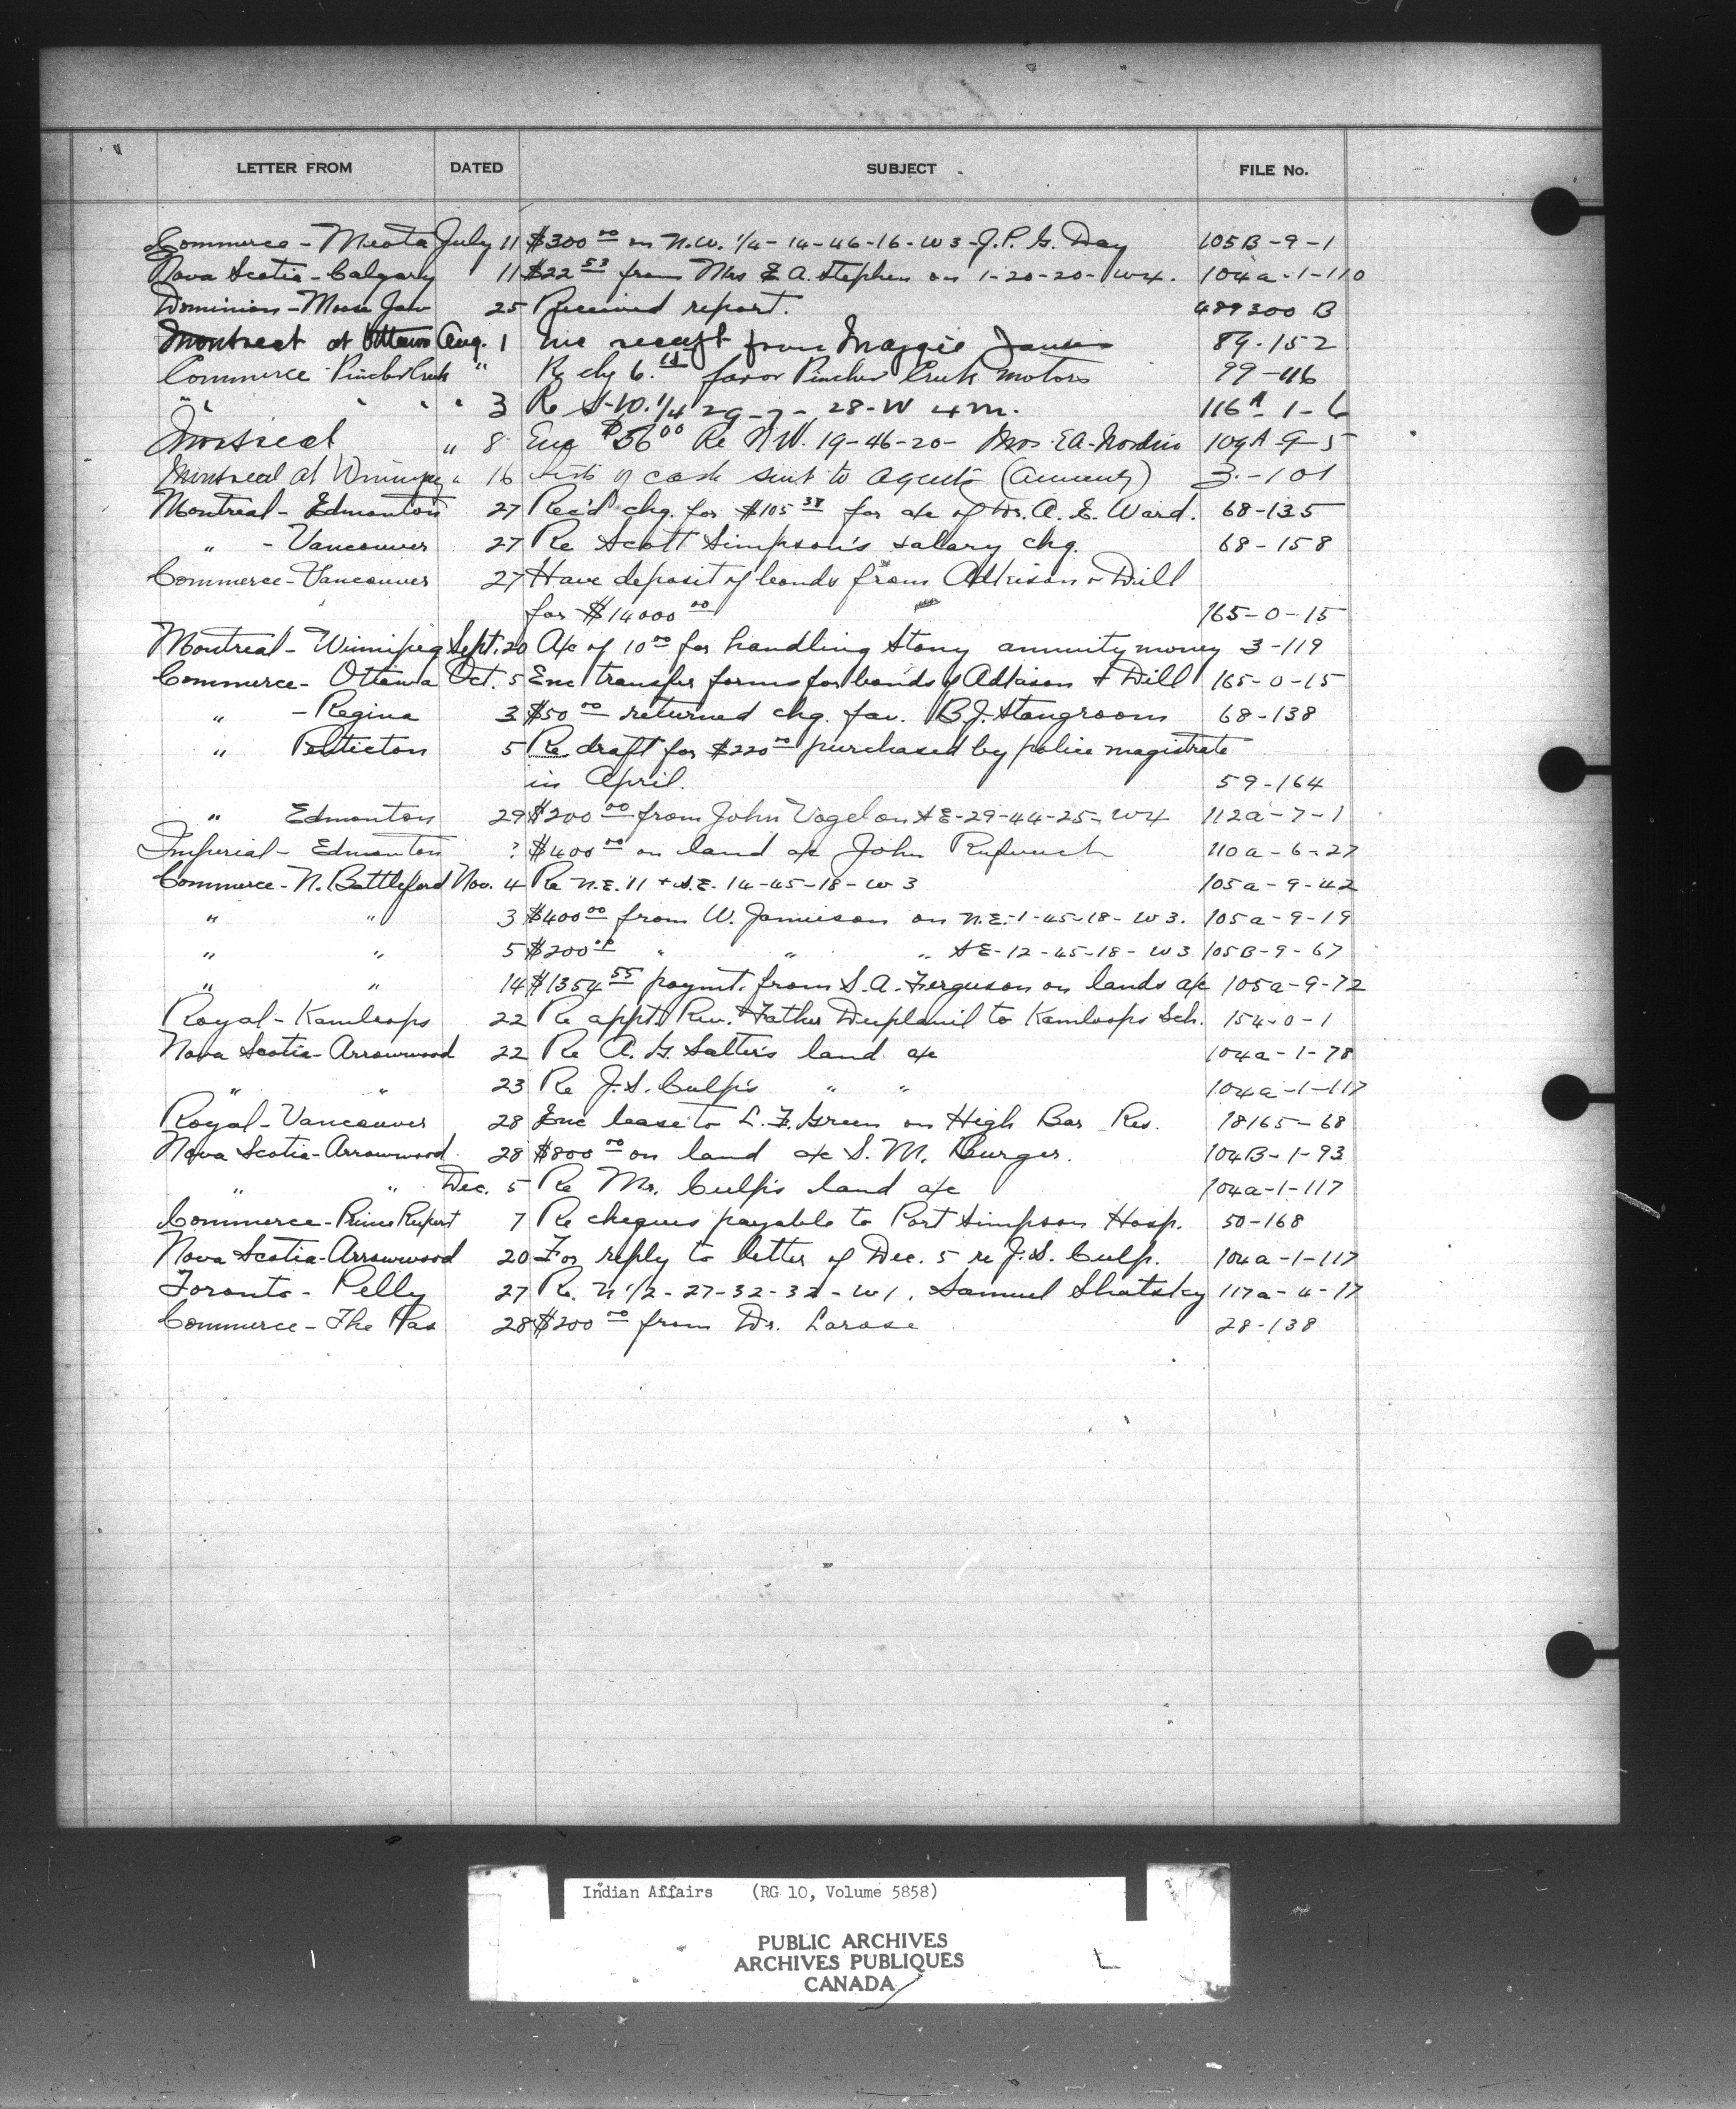 LETTER FROM DATED SUBJECT FILE No.
Commerce - Meota July 11 $300 00 on N.W. 1/4 - 14-46-16-W3-J.P.G. Day 105B-9-1
Nova Scotia - Calgary 11 $22 53 from Mrs E.A. Stephen on 1-20-20-W4. 104a-1-110
Dominion - Moose Jaw 25 Received report. 489300 B
Montreal at Ottawa Aug. 1 Enc receipt from Maggie 89-152
Commerce Pincher Creek " Re chq 6. favor Pincher Creek Motors 99-116
" " " " 3 Re S.W. 1/4 29-7-28-W 4 m. 116A-1-6
Montreal " 8 Enc $56 00 Re N.W. 19-46-20- Mrs. EA. 109A-9-5
Montreal at Winnipeg " 16 of cash sent to agents (annuity) 3-101
Montreal - Edmonton 27 Rec'd chq. for $105 38 for a/c of Dr. A. E. Ward. 68-135
" - Vancouver 27 Re Scott Simpson's salary chq. 68-158
Commerce - Vancouver 27 Have deposit of bonds from Adkison & Dill
for $14000 00 165-0-15
Montreal - Winnipeg Sept. 20 A/c of 10 00 for handling Stony annuity money 3-119
Commerce - Ottawa Oct. 5 Enc transfer forms for bonds of Adkison & Dill 165-0-15
" - Regina 3 $50 00 returned chq. fav. B.J. Stangroom 68-138
" Penticton 5 Re draft for $220 00 purchased by police magistrate
in April. 59-164
" Edmonton 29 $200 00 from John Vogel on SE-29-44-25-W4 112a-7-1
Imperial - Edmonton ? $400 00 on land a/c John 110a-6-27
Commerce - N. Battleford Nov. 4 Re N.E. 11 + S.E. 14-45-18-W3 105a-9-42
" " 3 $400 00 from W. Jamieson on N.E.-1-45-18-W3. 105a-9-19
" " 5 $200 00 " " " SE-12-45-18-W3 105B-9-67
" " 14 $1354 55 paymt. from S.A. Ferguson on lands a/c 105a-9-72
Royal - Kamloops 22 Re appt. Rev. Father to Kamloops Sch. 154-0-1
Nova Scotia - Arrowwood 22 Re A.G. Salter's land a/c 104a-1-78
" " 23 Re J.S. Culp's " " 104a-1-117
Royal - Vancouver 28 Enc lease to L.F. Green on High Bar Res. 78165-68
Nova Scotia - Arrowwood 28 $800 00 on land a/c S.M. Burger. 104B-1-93
" " Dec. 5 Re Mr. Culp's land a/c 104a-1-117
Commerce - Prince Rupert 7 Re cheques payable to Port Simpson Hosp. 50-168
Nova Scotia - Arrowwood 20 For reply to letter of Dec. 5 re J.S. Culp. 104a-1-117
Toronto - Pelly 27 Re. N 1/2 - 27-32-32-W1, Samuel Shatsky 117a-4-17
Commerce - The Pas 28 $200 00 from Dr. Larose 28-138
Indian Affairs (RG 10, Volume 5858)
PUBLIC ARCHIVES
ARCHIVES PUBLIQUES
CANADA